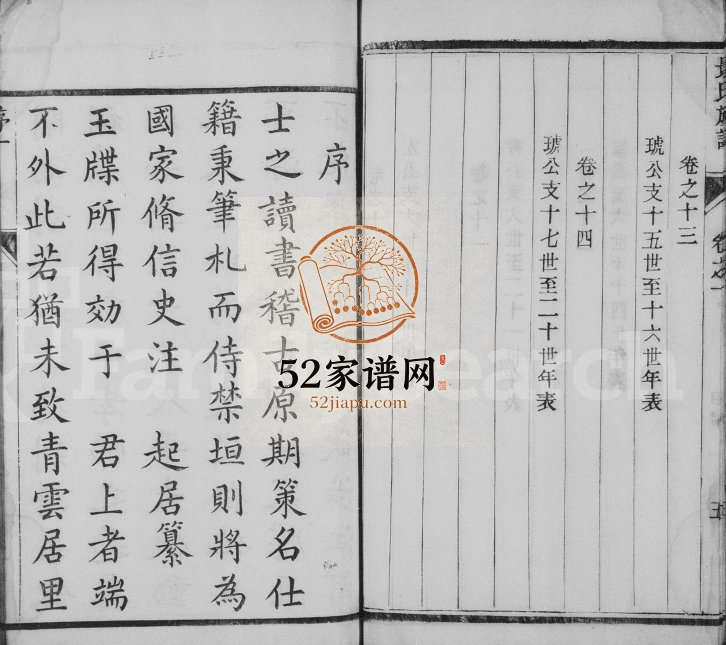 卷之十三
琥公支十五世至十六世年表
卷之十四
琥公支十七世至二十世年表
序
士之讀書稽古原期策名仕
籍秉筆札而侍禁垣則將為
國家脩信史注 起居纂
玉牒所得効于 君上者端
不外此若猶未致青雲居里
52家谱网
52jiapu.com